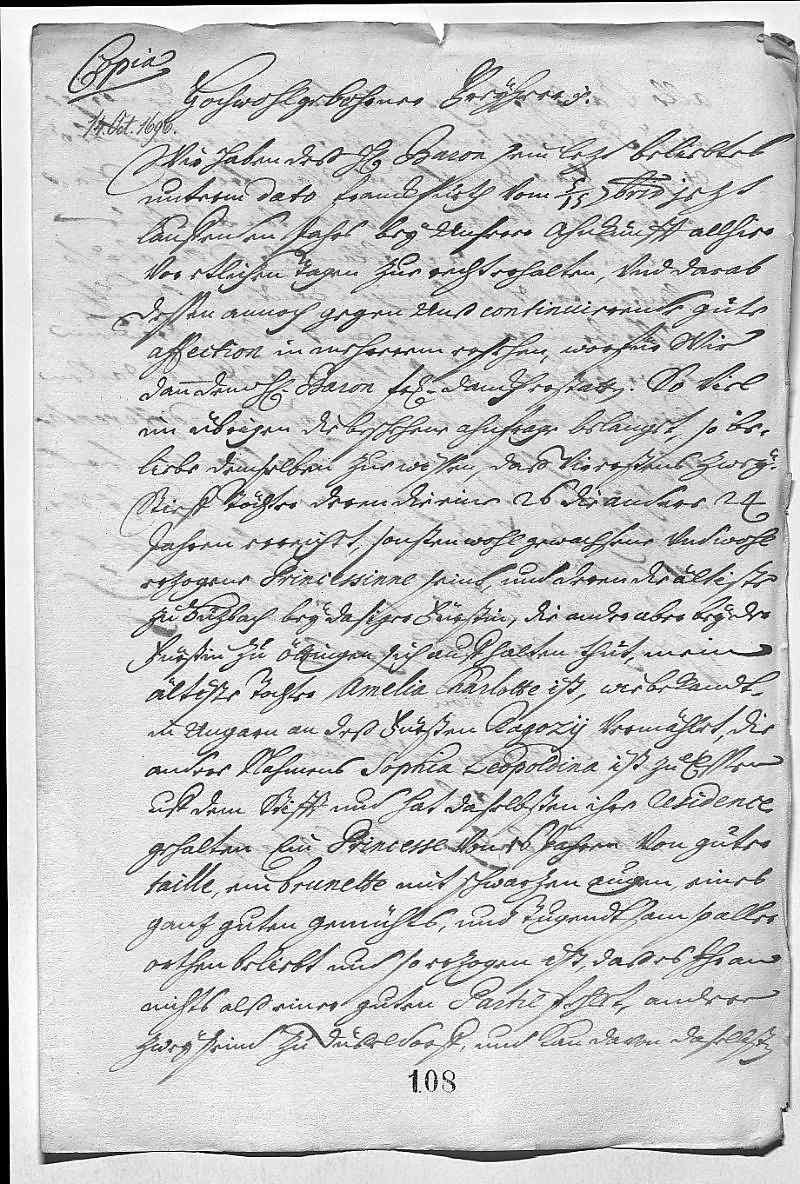 Copia
Hochwohlgebohrner Freyherr p.
14. Oct. 1696.
Wir haben deß H. Baron sein letzt beliebtes
unterm dato Franckfurth vom 5/15 jetzt
lauffenden Jahrs bey Unserer Ahnkunfft allhier
vor etlichen tagen zur recht erhalten, Und darab
dessen annoch gegen Uns continuirende gute
affection in mehrerem ersehen, worfür Wir
dann dem H. Baron danckh erstatten. So Viel
im übrigen die beschehene ahnfrage belanget, so be-
liebe demselben zur wissen, daß Vorerstens zwey
Stieff töchter deren die eine 26 die andere 24
Jahren erreicht, sonsten wohl gewachsene Und wohl
erzogene Princessinne seind, und deren die ältiste
zu Sultzbach bey dasiger Fürstin, die andre aber bey der
Fürstin zu Öttingen sich auffhalten thut, mein
ältiste tochter Amelia Charlotte ist, wie bekandt,
in Ungarn an deß Fürsten Ragozij Vermählet, die
andere Nahmens Sophia Leopoldina ist zu Essen
uff dem Stifft und hat daselbsten ihre residence
gehalten Ein Princesse Von 16 Jahren Von guter
taille, ein brunette mit schwartzen augen, eines
gantz guten gemühts, und tugendtsam so aller
orthen beliebt und so erzogen ist, daß es Ihr an
nichts alß einer guten Partie fehlet, andere
zwey seind zu Düsseldorff, und kan davon daselbst
108